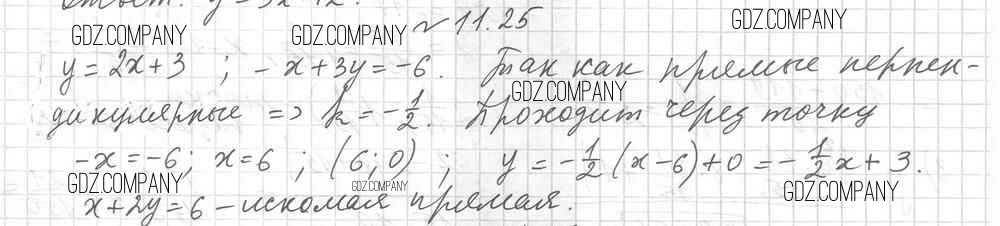 Ответ: y = 3x + 2.
GDZ.COMPANY GDZ.COMPANY № 11.25 GDZ.COMPANY
y = 2x + 3 ; - x + 3y = -6. Так как прямые перпен-
GDZ.COMPANY
дикулярные => k = - 1/2. Проходит через точку
- x = -6; x = 6 ; (6; 0) ; y = - 1/2 (x - 6) + 0 = - 1/2 x + 3.
GDZ.COMPANY GDZ.COMPANY GDZ.COMPANY
x + 2y = 6 - искомая прямая.